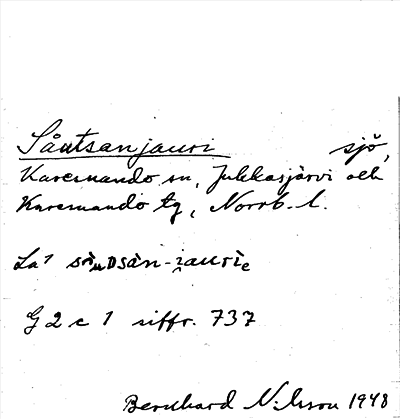 Såutsanjauri sjö,
Karesuando sn, Jukkasjärvi och
Karesuando tg, Norrb. l.
La 1
G 2 c 1 siffr. 737
Bernhard Nilsson 1948